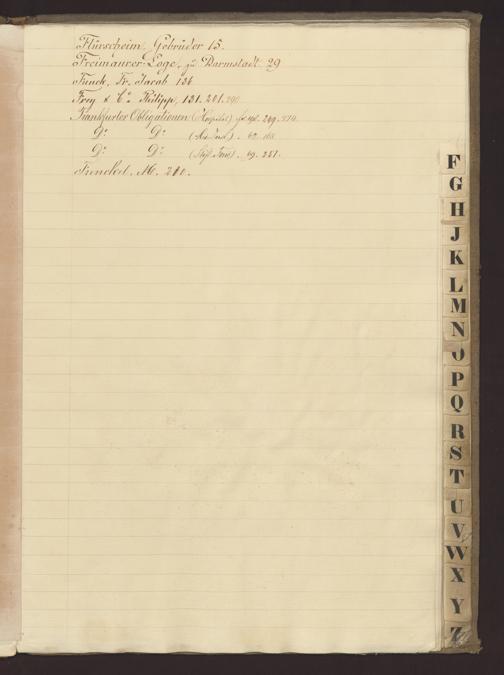 Flürscheim, Gebrüder 15.
Freimaurer-Loge, zu Darmstadt 29
Funck, Fr. Jacob 136
Frey & Co. Philipp, 131. 201. 290
Frankfurter Obligationen (Hospital) 249. 274.
Do. Do. 62. 168.
Do. Do. 69. 257.
Frenckel, M. 210.
F
G
H
J
K
L
M
N
O
P
Q
R
S
T
U
V
W
X
Y
Z